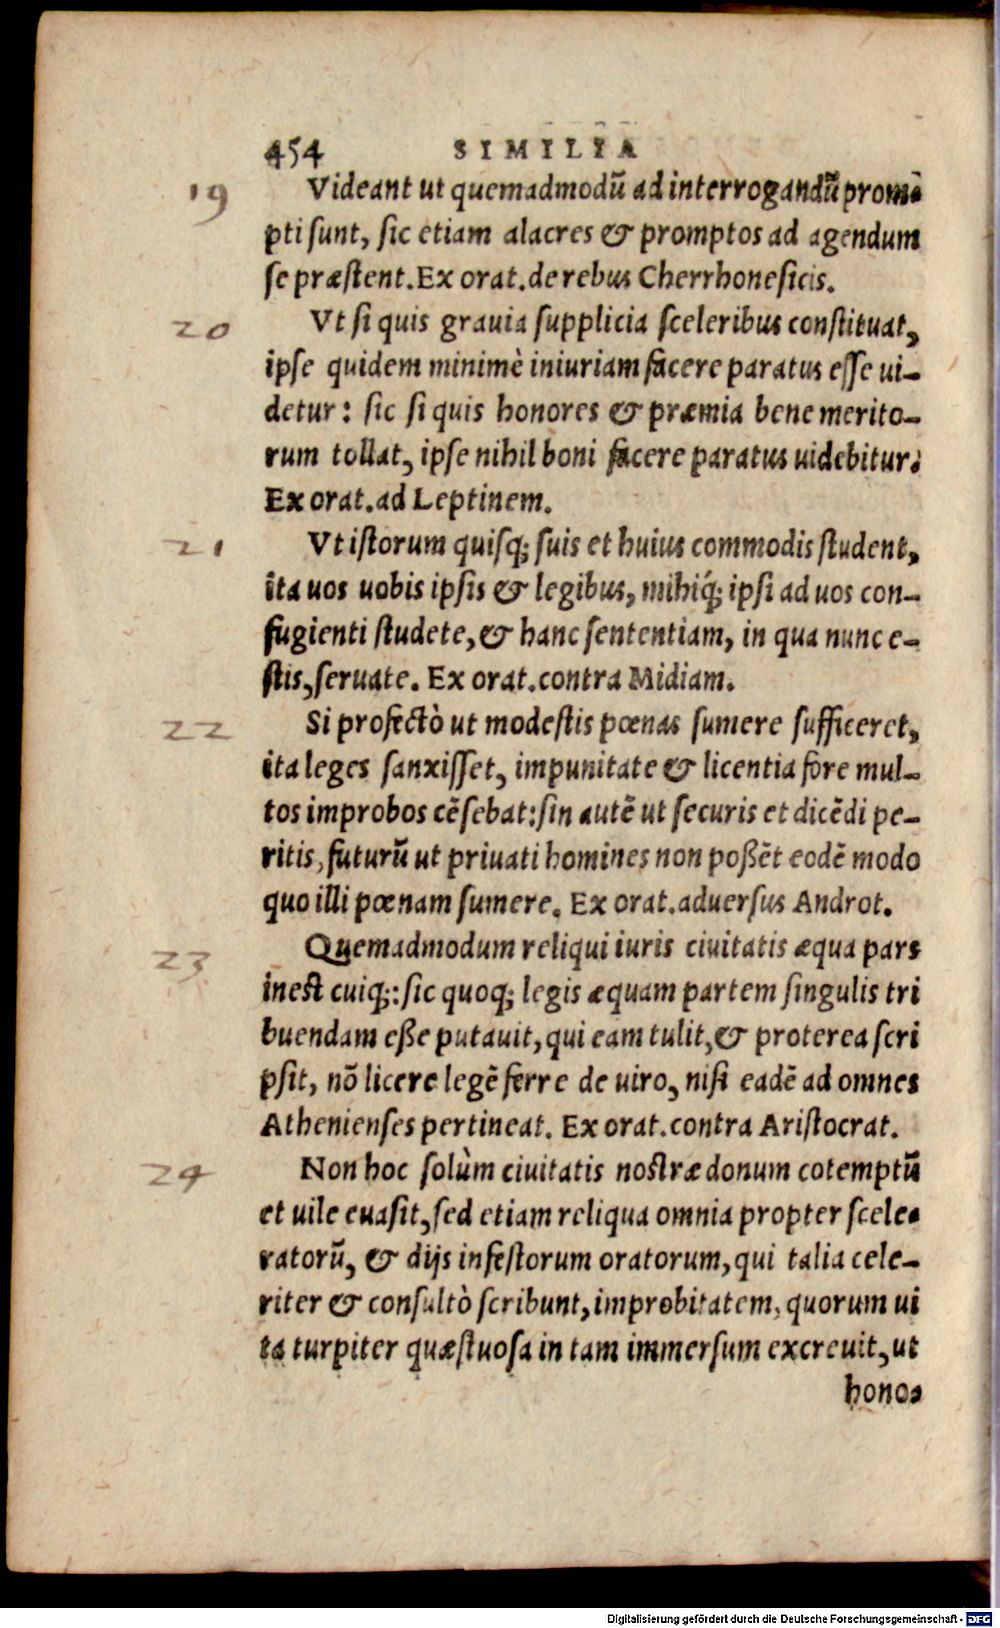 454 SIMILIA
19 Videant ut quemadmodũ ad interrogandũ prom-
pti sunt, sic etiam alacres & promptos ad agendum
se præstent. Ex orat. de rebus Cherrhonesicis.
20 Vt si quis grauia supplicia sceleribus constituat,
ipse quidem minimè iniuriam facere paratus esse ui-
detur: sic si quis honores & præmia bene merito-
rum tollat, ipse nihil boni facere paratus uidebitur.
Ex orat. ad Leptinem.
21 Vt istorum quisq; suis et huius commodis student,
ita uos uobis ipsis & legibus, mihiq́; ipsi ad uos con-
fugienti studete, & hanc sententiam, in qua nunc e-
stis, seruate. Ex orat. contra Midiam.
22 Si profectò ut modestis pœnas sumere sufficeret,
ita leges sanxisset, impunitate & licentia fore mul-
tos improbos cẽsebat: sin autẽ ut securis et dicẽdi pe-
ritis, futurũ ut priuati homines non poßẽt eodẽ modo
quo illi pœnam sumere. Ex orat. aduersus Androt.
23 Quemadmodum reliqui iuris ciuitatis æqua pars
inest cuiq;: sic quoq; legis æquam partem singulis tri
buendam eße putauit, qui eam tulit, & proterea scri
psit, nõ licere legẽ ferre de uiro, nisi eadẽ ad omnes
Athenienses pertineat. Ex orat. contra Aristocrat.
24 Non hoc solùm ciuitatis nostræ donum cotemptũ
et uile euasit, sed etiam reliqua omnia propter scele-
ratorũ, & dijs infestorum oratorum, qui talia cele-
riter & consultò scribunt, improbitatem, quorum ui
ta turpiter quæstuosa in tam immersum excreuit, ut
hono-
Digitalisierung gefördert durch die Deutsche Forschungsgemeinschaft - DFG